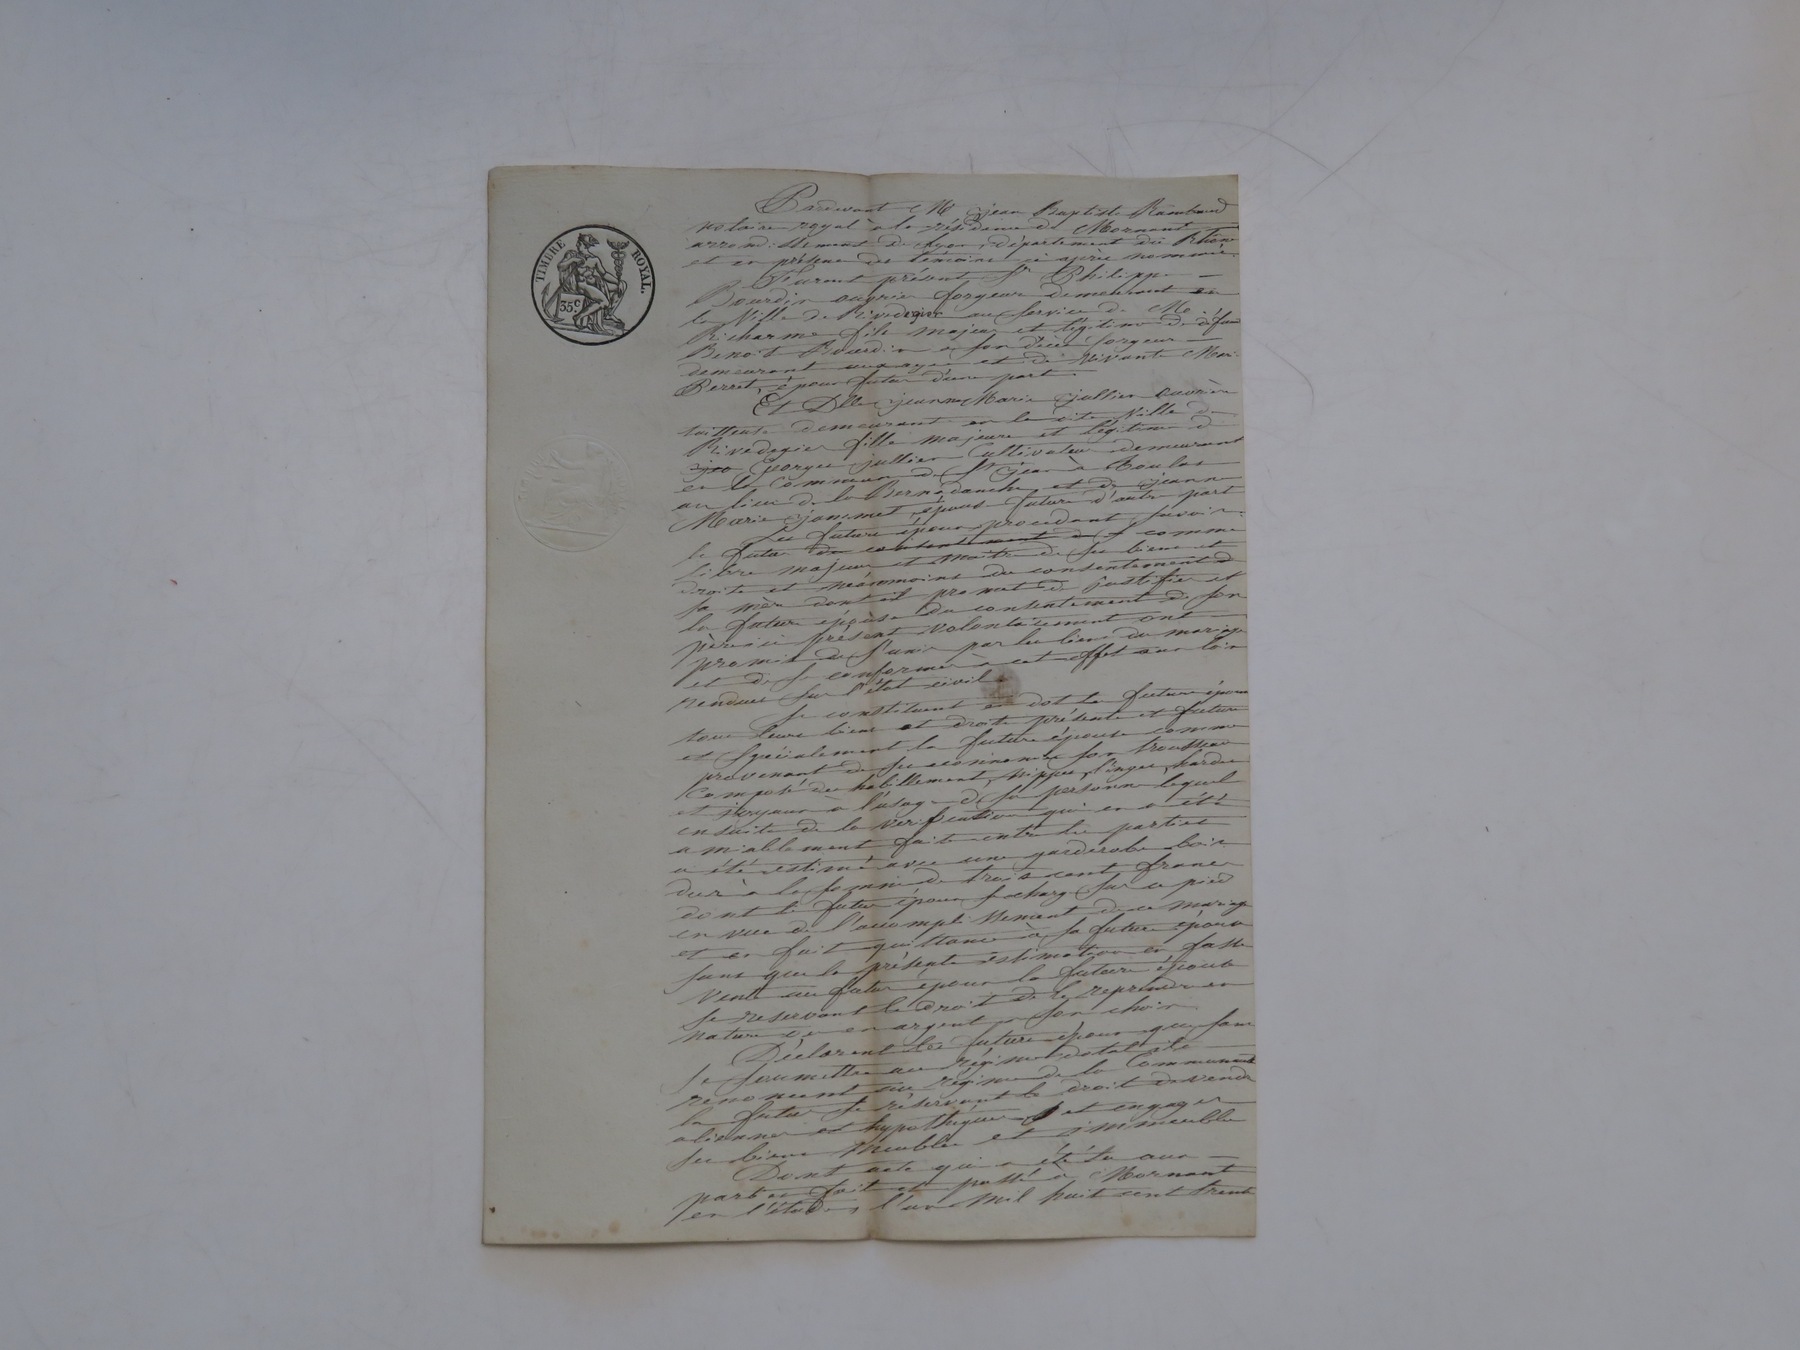 TIMBRE ROYAL.
35 c.
Pardevant Me jean Baptiste Rambaud
notaire royal à la résidence de Mornant
arrondissement de Lyon, département du Rhône
et en présence des témoins ci après nommés.
Furent présents Sr Philippe
Bourdin ouvrier forgeur demeurant en
la Ville de Rivedegier au service de Mr
Richarme fils majeur et légitime de défunt
Benoit Bourdin en son vivant forgeur
demeurant et de vivante Marie
Perret, époux futur d'une part.
Et Dlle jeanne Marie jullien ouvrière
tailleuse demeurant en la dite Ville de
Rivedegier fille majeure et légitime de
Georges jullien Cultivateur demeurant
en la Commune de St jean à Toulas
au lieu de la et de jeanne
Marie jammet, épouse future d'autre part
Les futurs époux procédant savoir:
le futur du consentement de comme
libre majeur et maître de ses biens et
droits et néanmoins du consentement de
sa mère dont il promet de justifier et
la future épouse du consentement de son
père ici présent volontairement ont
promis de s'unir par les liens du mariage
et de se conformer à cet effet aux lois
rendues sur l'état civil.
Se constituent en dot les futurs époux
tous leurs biens et droits présents et futurs
et spécialement la future épouse comme
provenant de ses économies son trousseau
composé de habillements, nippes, linges, hardes
et joyaux à l'usage de sa personne lequel
ensuite de la vérification qui en a été
amiablement faite entre les parties
a été estimé avec une garderobe bois
dur à la somme de trois cent francs
dont le futur époux se charge sur ce pied
en vue de l'accomplissement de ce mariage
et en fait quittance à sa future épouse
sans que la présente estimation en fasse
vente au futur époux la future épouse
se réservant le droit de le reprendre en
nature ou en argent à son choix
Déclarent les futurs époux que sans
se soumettre au régime dotal ils
renoncent au régime de la Communauté
la future se réservant le droit de vendre
aliéner et hypothéquer et engager
ses biens meubles et immeubles
Dont acte qui a été lu aux
parties fait et passé à Mornant
en l'étude, l'an mil huit cent trente